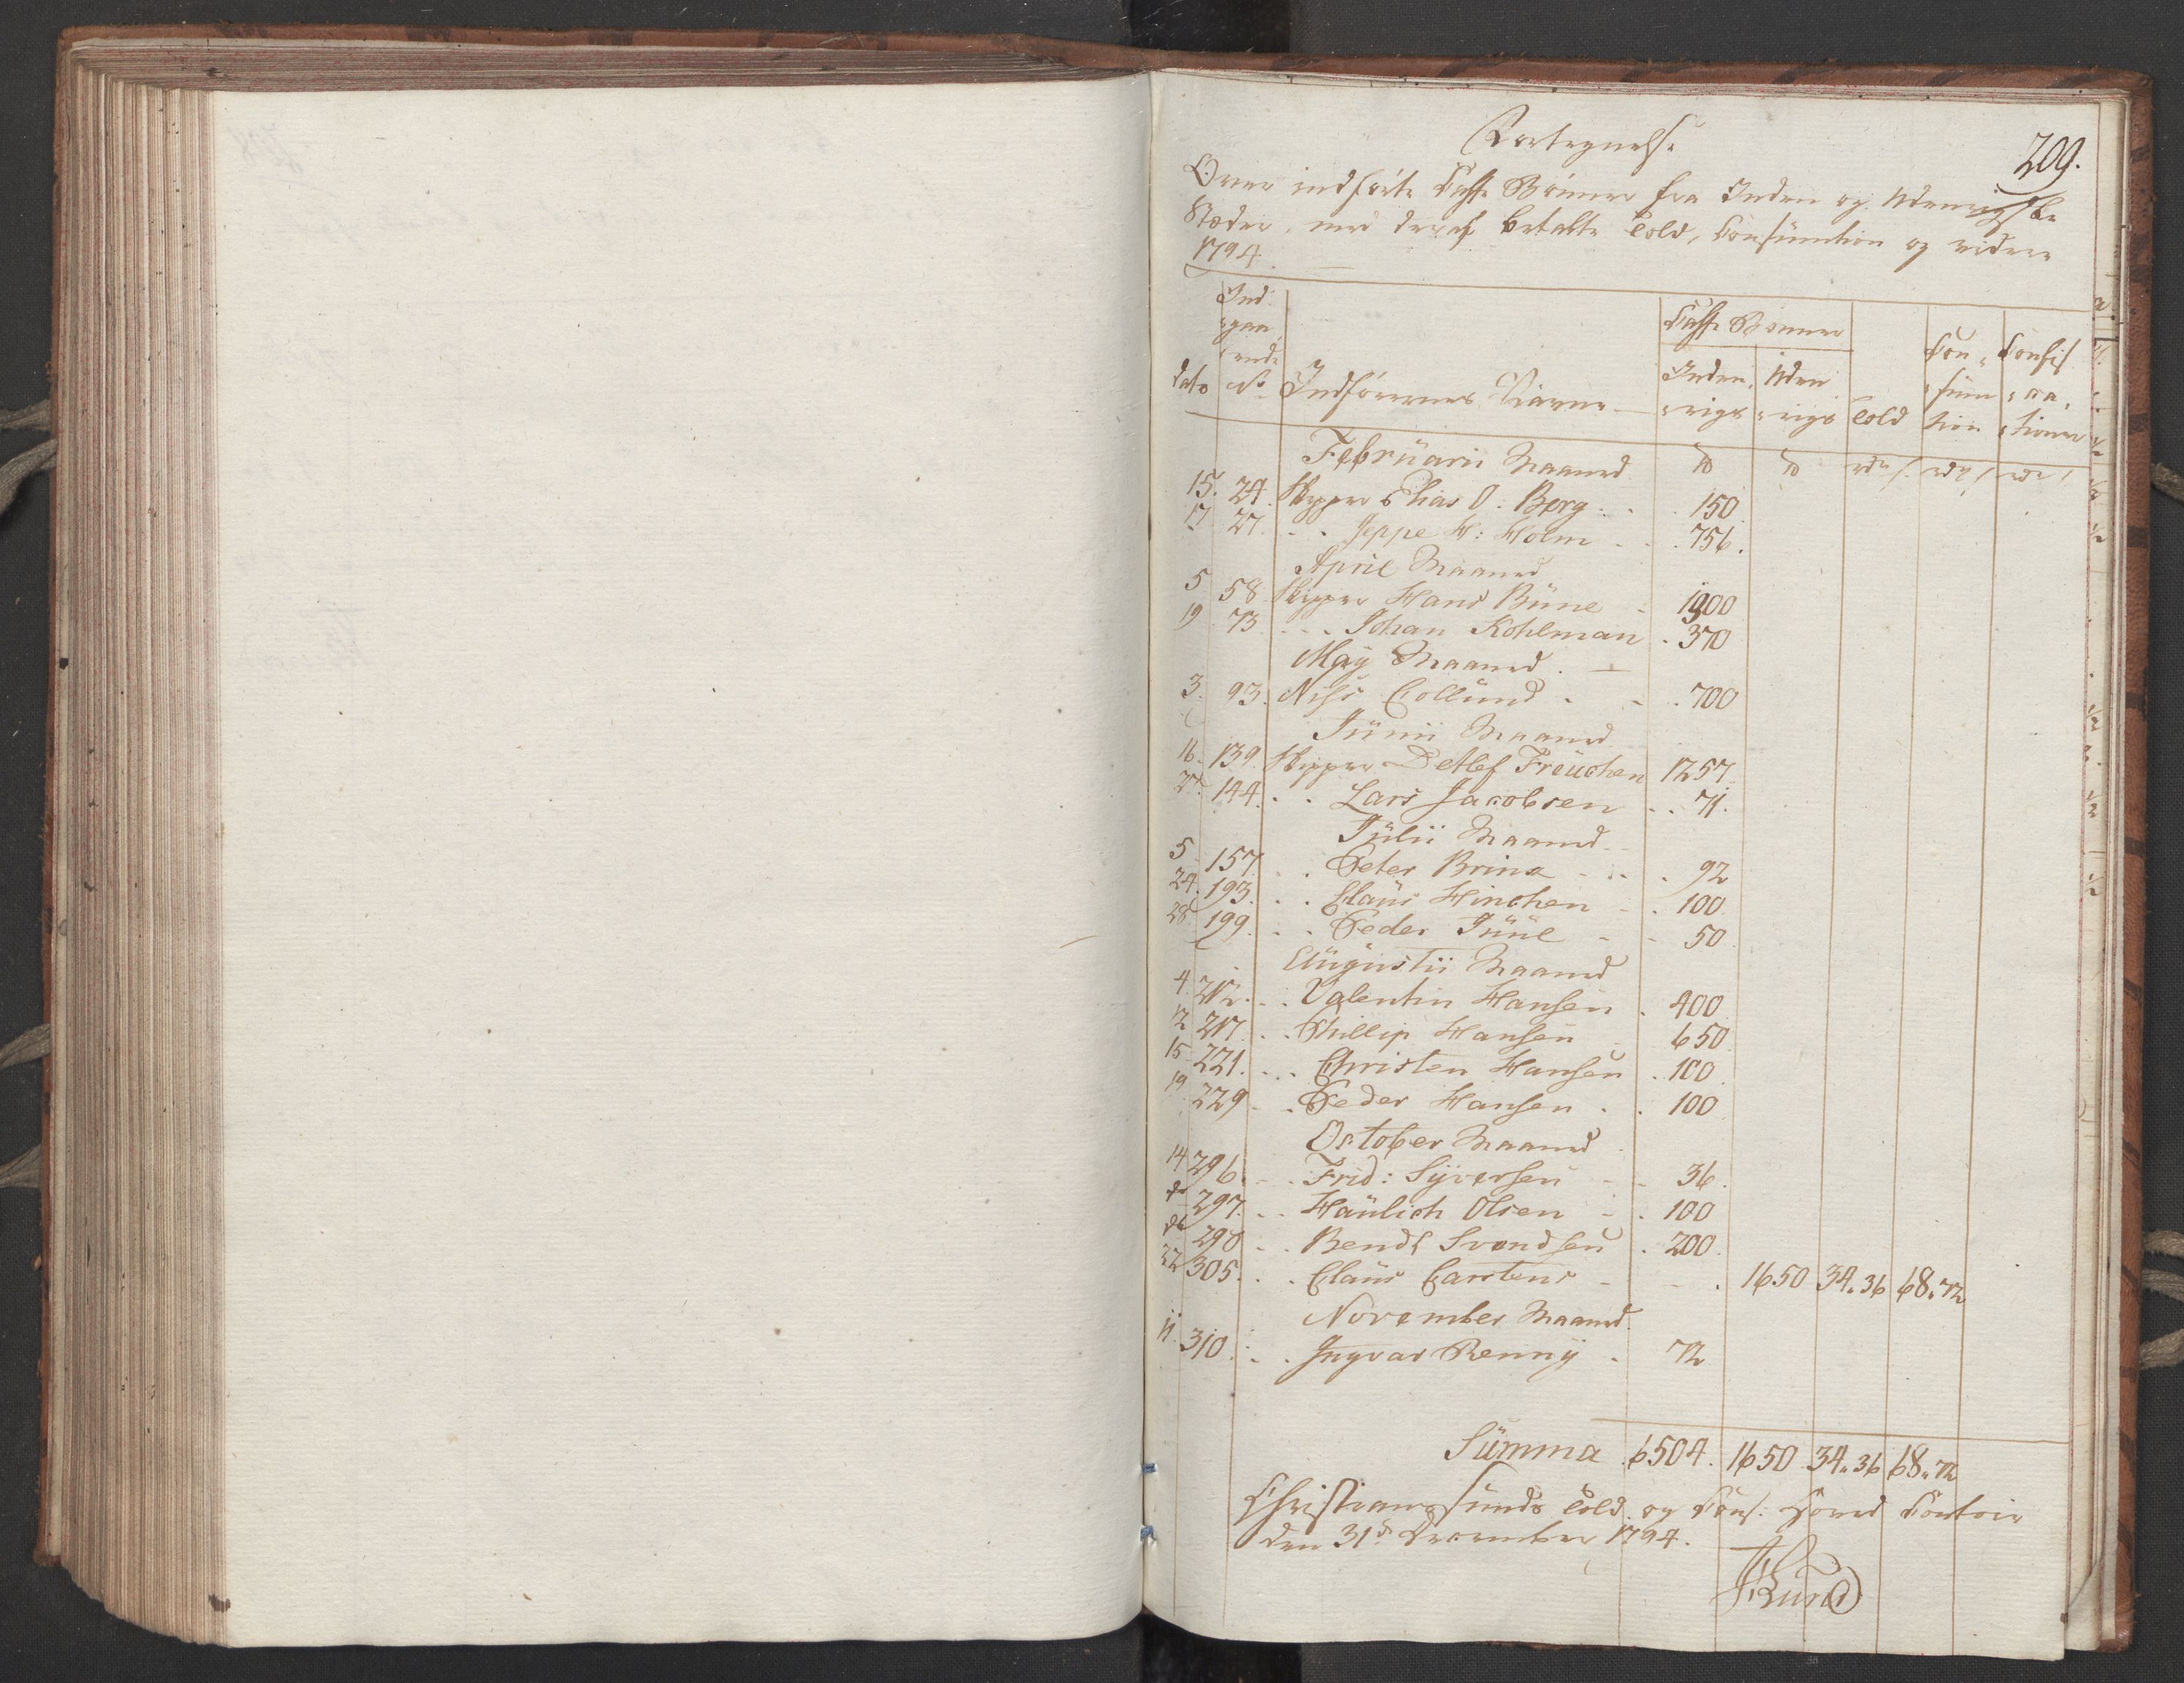 209.
Fortegnelse
Over indførte Caffe Bønner fra Inden og Udenrigske
Stæder, med deraf betalte Told, Consumtion og videre
1794
dato
Ind-
gaa-
ende
No
Indførernes Navne
Caffe Bønner
Inden-
rigs
Uden-
rigs
Told
Con-
sum-
tion
Confis-
ca-
tioner
Februarii Maaned ℔ ℔ rdr s. rdr s. rdr s.
15. 24. Skipper Elias O. Berg. 150
17 27. . . Jeppe H: Holm . 756.
April Maaned
5 58 Skipper Hans Büne - 1900
19 73 . . Johan Kohlman . 370
Maÿ Maaned.
3. 93. Nihs Collünd . 700
Jünii Maaned
16. 139. Skipper Detlef Freüchen 1257
27. 144. . . Lars Jacobsen . . 71.
Jülii Maaned
5 157. . . Peter Brinz . 92
24. 193. . . Claüs Hinchen . 100.
28 199. . . Peder Jüül - 50.
Aügüstii Maaned
4 212. . . Valentin Hansen . 400
12 217. . . Phillip Hansen 650
15 221. . . Christen Hansen . 100.
19 229 . . Peder Hansen . . 100
October Maaned
14 296. . . Frid: Sÿversen - 36.
do 297. . . Haülich Olsen . 100
do 298 . . Bendt Svendsen . 200.
22 305. . . Claüs Carstens - . 1650 34.36 68.72
November Maaned.
11. 310. . . Ingvar Rennÿ . 72
Sümma 6504. 1650 34.36 68.72
Christiansunds Told. og Cons: Hoved Contoir
den 31te December 1794.